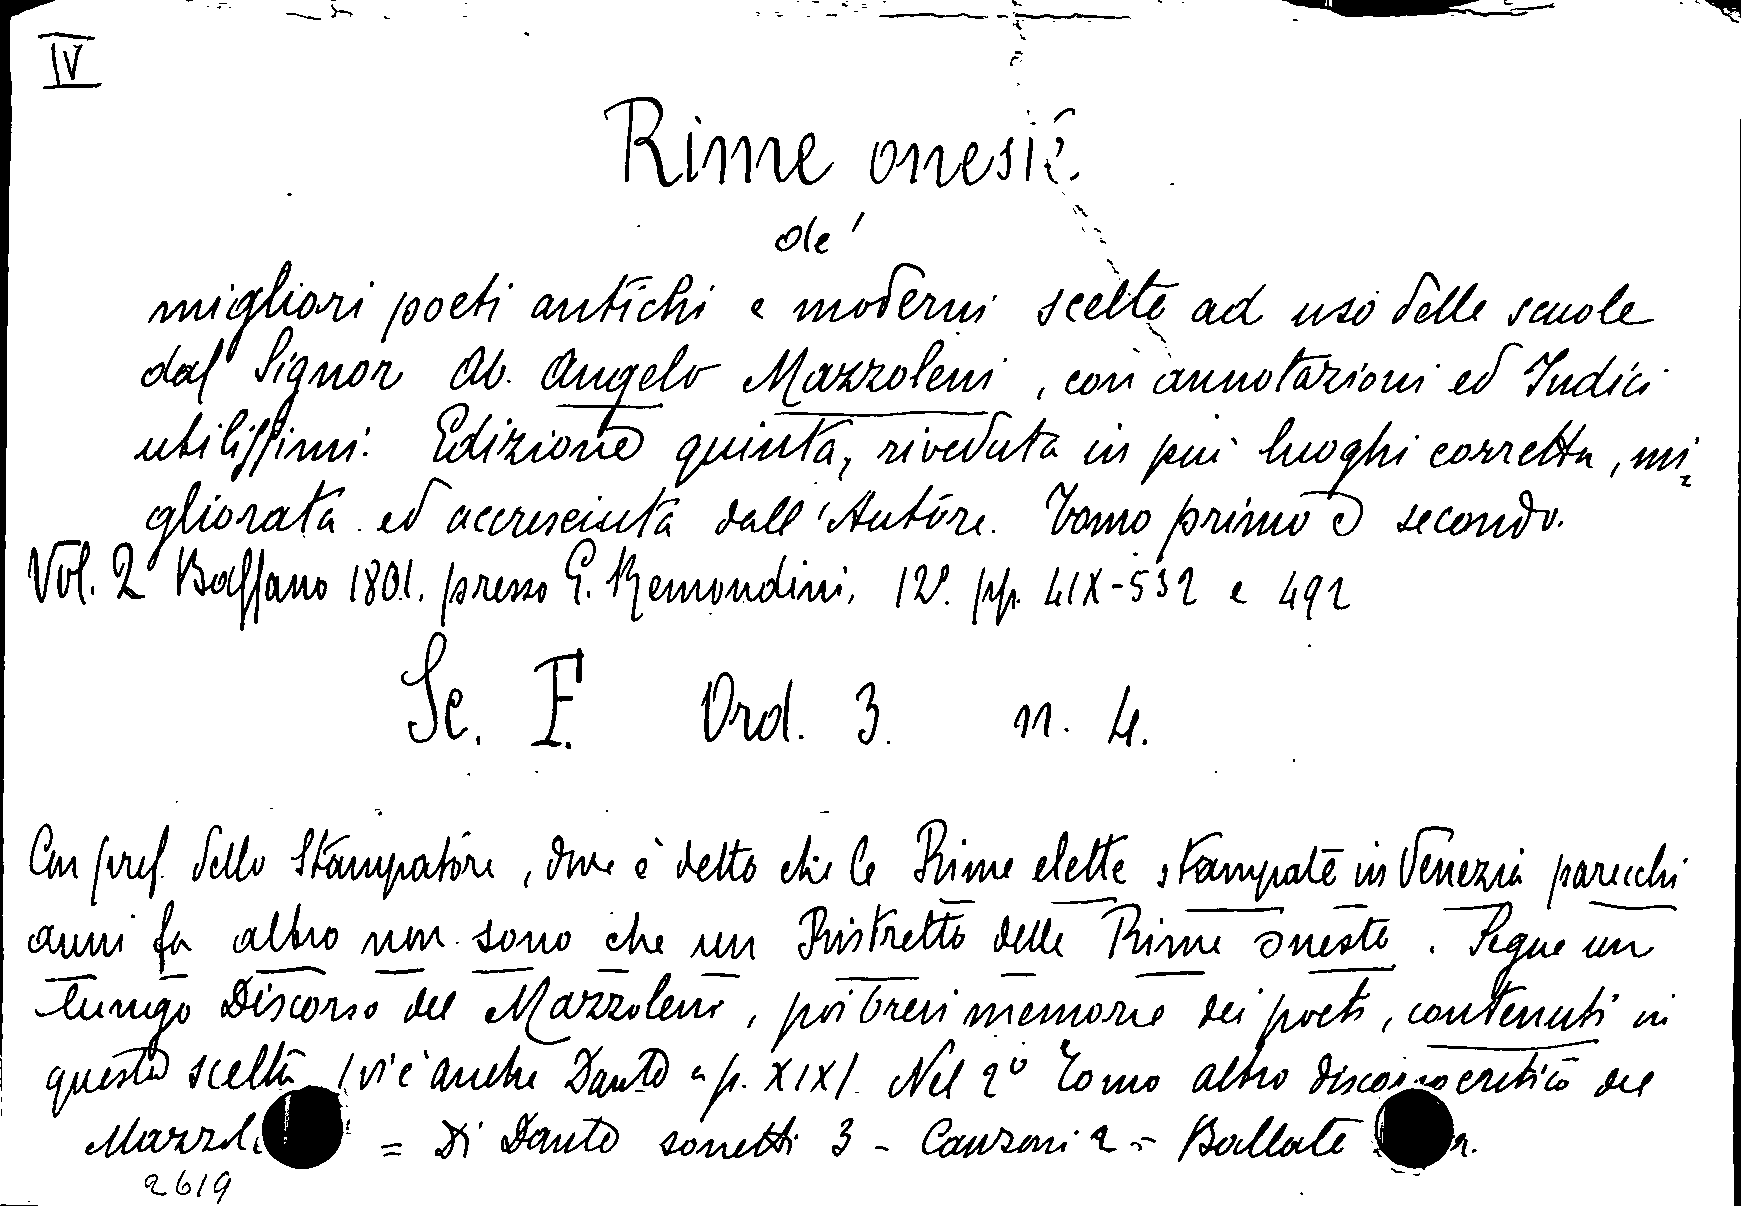 IV
Rime oneste.
de'
migliori poeti antichi e moderni scelte ad uso delle scuole
dal Signor Ab. Angelo Mazzoleni, con annotazioni ed Indici
utilissimi. Edizione quinta, riveduta in più luoghi corretta, mi-
gliorata ed accresciuta dall'Autore. Tomo primo e secondo.
Vol. 2 Bassano 1801. presso G. Remondini, 12º. pp. LIX-532 e 492
Se. F. Ord. 3. n. 4.
Con pref. dello Stampatore, dove è detto che le Rime elette stampate in Venezia parecchi
anni fa altro non sono che un Ristretto delle Rime oneste. Segue un
lungo Discorso del Mazzoleni, poi brevi memorie dei poeti, contenuti in
questa scelta (vi è anche Dante a p. XIX). Nel 2º Tomo altro discorso critico del
= Di Dante sonetti 3 - Canzoni 2 - Ballate
2619